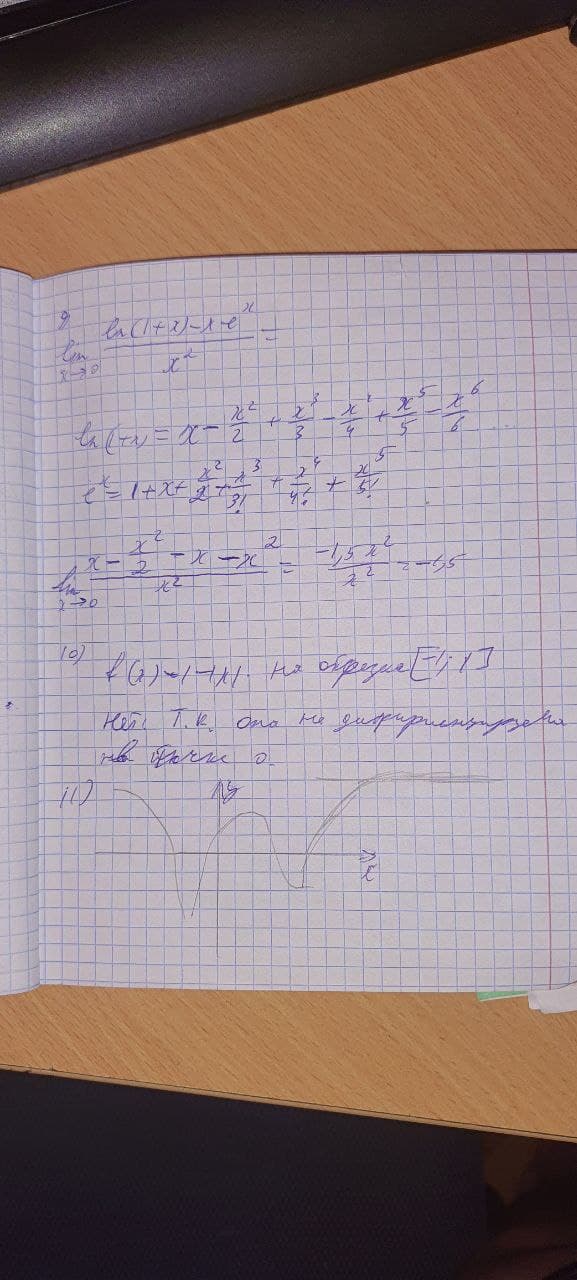 9
lim x→0 (ln(1+x)-x·e^x)/x^2 =
ln(1+x) = x - x^2/2 + x^3/3 - x^4/4 + x^5/5 - x^6/6
e^x = 1+x+x^2/2+x^3/3! + x^4/4! + x^5/5!
lim x→0 (x - x^2/2 - x - x^2)/x^2 = -1,5x^2/x^2 = -1,5
10)
f(x) = 1-|x|. на [-1; 1]
Нет, т.к. она не
в точке 0.
11)
y
x